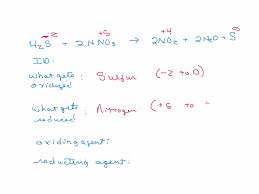 -2 +5 +4 0
H₂S + 2HNO₃ → 2NO₂ + 2H₂O + S
ID:
what gets oxidized : Sulfur (-2 to 0)
what gets reduced : Nitrogen (+5 to
oxidizing agent:
reducting agent: